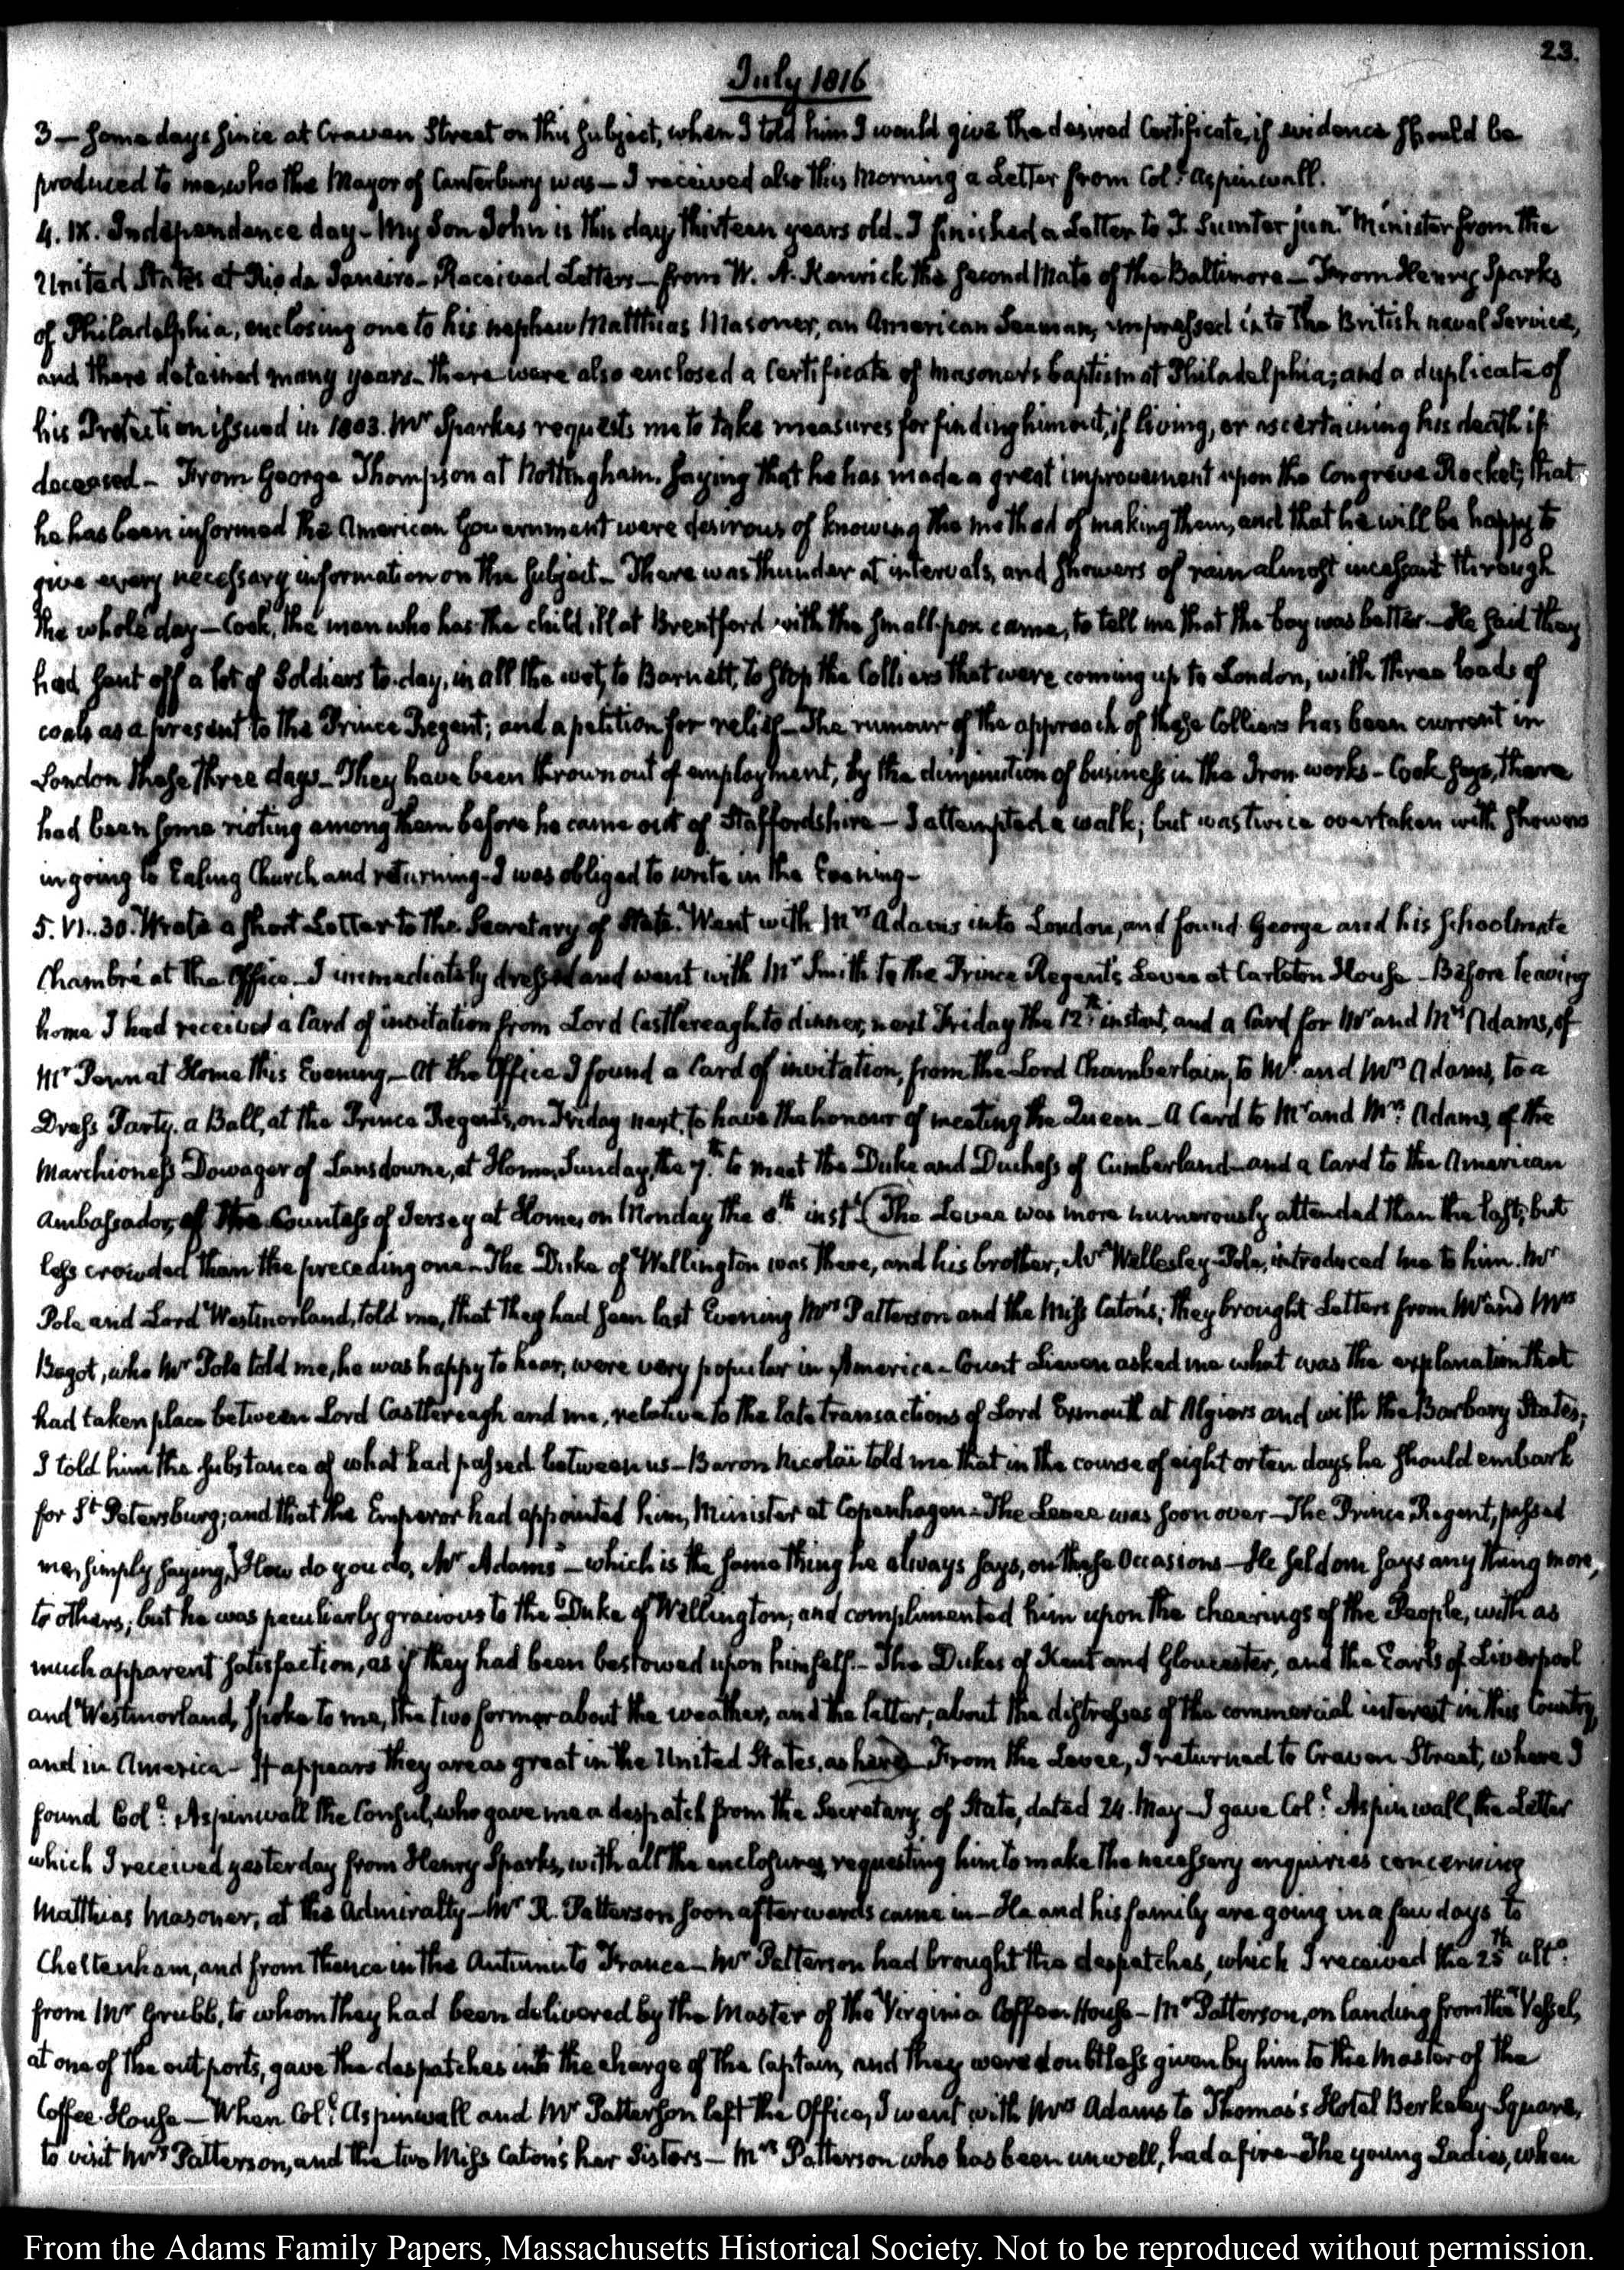 23.
July 1816
3 — some days since at Craven Street on this subject, when I told him I would give the desired Certificate, if evidence should be
produced to me, who the Mayor of Canterbury was — I received also this Morning a Letter from Col.l Aspinwall.
4. IX. Independence day — My Son John is this day, thirteen years old. I finished a Letter to T. Sumter jun.r Minister from the
United States at Rio de Janeiro — Received Letters — from W. A. Kenrick the second Mate of the Baltimore — From Henry Sparks
of Philadelphia, enclosing one to his nephew Matthias Masoner, an American Seaman, impressed into the British naval Service,
and there detained many years — there were also enclosed a Certificate of Masoner's baptism at Philadelphia; and a duplicate of
his Protection issued in 1803. Mr Sparkes requests me to take measures for finding him out, if living, or ascertaining his death if
deceased — From George Thompson at Nottingham. saying that he has made a great improvement upon the Congreve Rocket; that
he has been informed the American Government were desirous of knowing the method of making them, and that he will be happy to
give every necessary information on the subject — There was thunder at intervals, and showers of rain almost incessant through
the whole day — Cook, the man who has the child ill at Brentford with the small-pox came, to tell me that the boy was better — He said they
had sent off a lot of Soldiers to-day, in all the wet, to Barnett, to stop the Colliers that were coming up to London, with three loads of
coals as a present to the Prince Regent; and a petition for relief — The rumour of the approach of these Colliers has been current in
London these three days — They have been thrown out of employment, by the diminution of business in the Iron works — Cook says, there
had been some rioting among them before he came out of Staffordshire — I attempted a walk; but was twice overtaken with showers
in going to Ealing Church and returning — I was obliged to write in the Evening —
5. VI..30. Wrote a short Letter to the Secretary of State. Went with Mrs Adams into London, and found George and his Schoolmate
Chambré at the Office — I immediately dressed and went with Mr Smith to the Prince Regent's Levee at Carleton House — Before leaving
home I had received a Card of invitation from Lord Castlereagh to dinner, next Friday the 12th instant, and a Card for Mr and Mrs Adams, of
Mr Penn at Home this Evening — At the Office I found a Card of invitation, from the Lord Chamberlain, to Mr and Mrs Adams, to a
Dress Party. a Ball, at the Prince Regent's, on Friday next, to have the honour of meeting the Queen — A Card to Mr and Mrs Adams, of the
Marchioness Dowager of Lansdowne, at Home, Sunday, the 7th to meet the Duke and Duchess of Cumberland — and a Card to the American
Ambassador, of the Countess of Jersey at Home, on Monday the 8th inst (The Levee was more numerously attended than the last; but
less crowded than the preceding one — The Duke of Wellington was there, and his brother, Mr Wellesley-Pole, introduced me to him. Mr
Pole and Lord Westmorland, told me, that they had seen last Evening Mrs Patterson and the Miss Caton's; they brought Letters from Mr and Mrs
Bagot, who Mr Pole told me, he was happy to hear, were very popular in America — Count Lieven asked me what was the explanation that
had taken place between Lord Castlereagh and me, relative to the late transactions of Lord Exmouth at Algiers and with the Barbary States;
I told him the substance of what had passed between us — Baron Nicolaï told me that in the course of eight or ten days he should embark
for St Petersburg; and that the Emperor had appointed him, Minister at Copenhagen — The Levee was soon over — The Prince Regent, passed
me, simply saying,) How do you do, Mr Adams — which is the same thing he always says, on these Occasions — He seldom says any thing more,
to others, but he was peculiarly gracious to the Duke of Wellington, and complimented him upon the cheerings of the People, with as
much apparent satisfaction, as if they had been bestowed upon himself — The Dukes of Kent and Gloucester, and the Earls of Liverpool
and Westmorland, spoke to me, the two former about the weather, and the latter, about the distresses of the commercial interest in this Country,
and in America — It appears they are as great in the United States, as here) — From the Levee, I returned to Craven Street, where I
found Col.l Aspinwall the Consul, who gave me a despatch from the Secretary of State, dated 24. May — I gave Col.l Aspinwall, the Letter
which I received yesterday from Henry Sparks, with all the enclosures, requesting him to make the necessary enquiries concerning
Matthias Masoner, at the Admiralty — Mr R. Patterson soon afterwards came in — He and his family are going in a few days to
Cheltenham, and from thence in the Autumn to France — Mr Patterson had brought the despatches, which I received the 25th ulto
from Mr Grubb, to whom they had been delivered by the Master of the Virginia Coffee-House — Mr Patterson, on landing from the Vessel,
at one of the outports, gave the despatches into the charge of the Captain, and they were doubtless given by him to the Master of the
Coffee-House — When Col.l Aspinwall and Mr Patterson left the Office, I went with Mrs Adams to Thomas's Hotel Berkeley Square,
to visit Mrs Patterson, and the two Miss Caton's her Sisters — Mrs Patterson who has been unwell, had a fire — The young Ladies, when
From the Adams Family Papers, Massachusetts Historical Society. Not to be reproduced without permission.